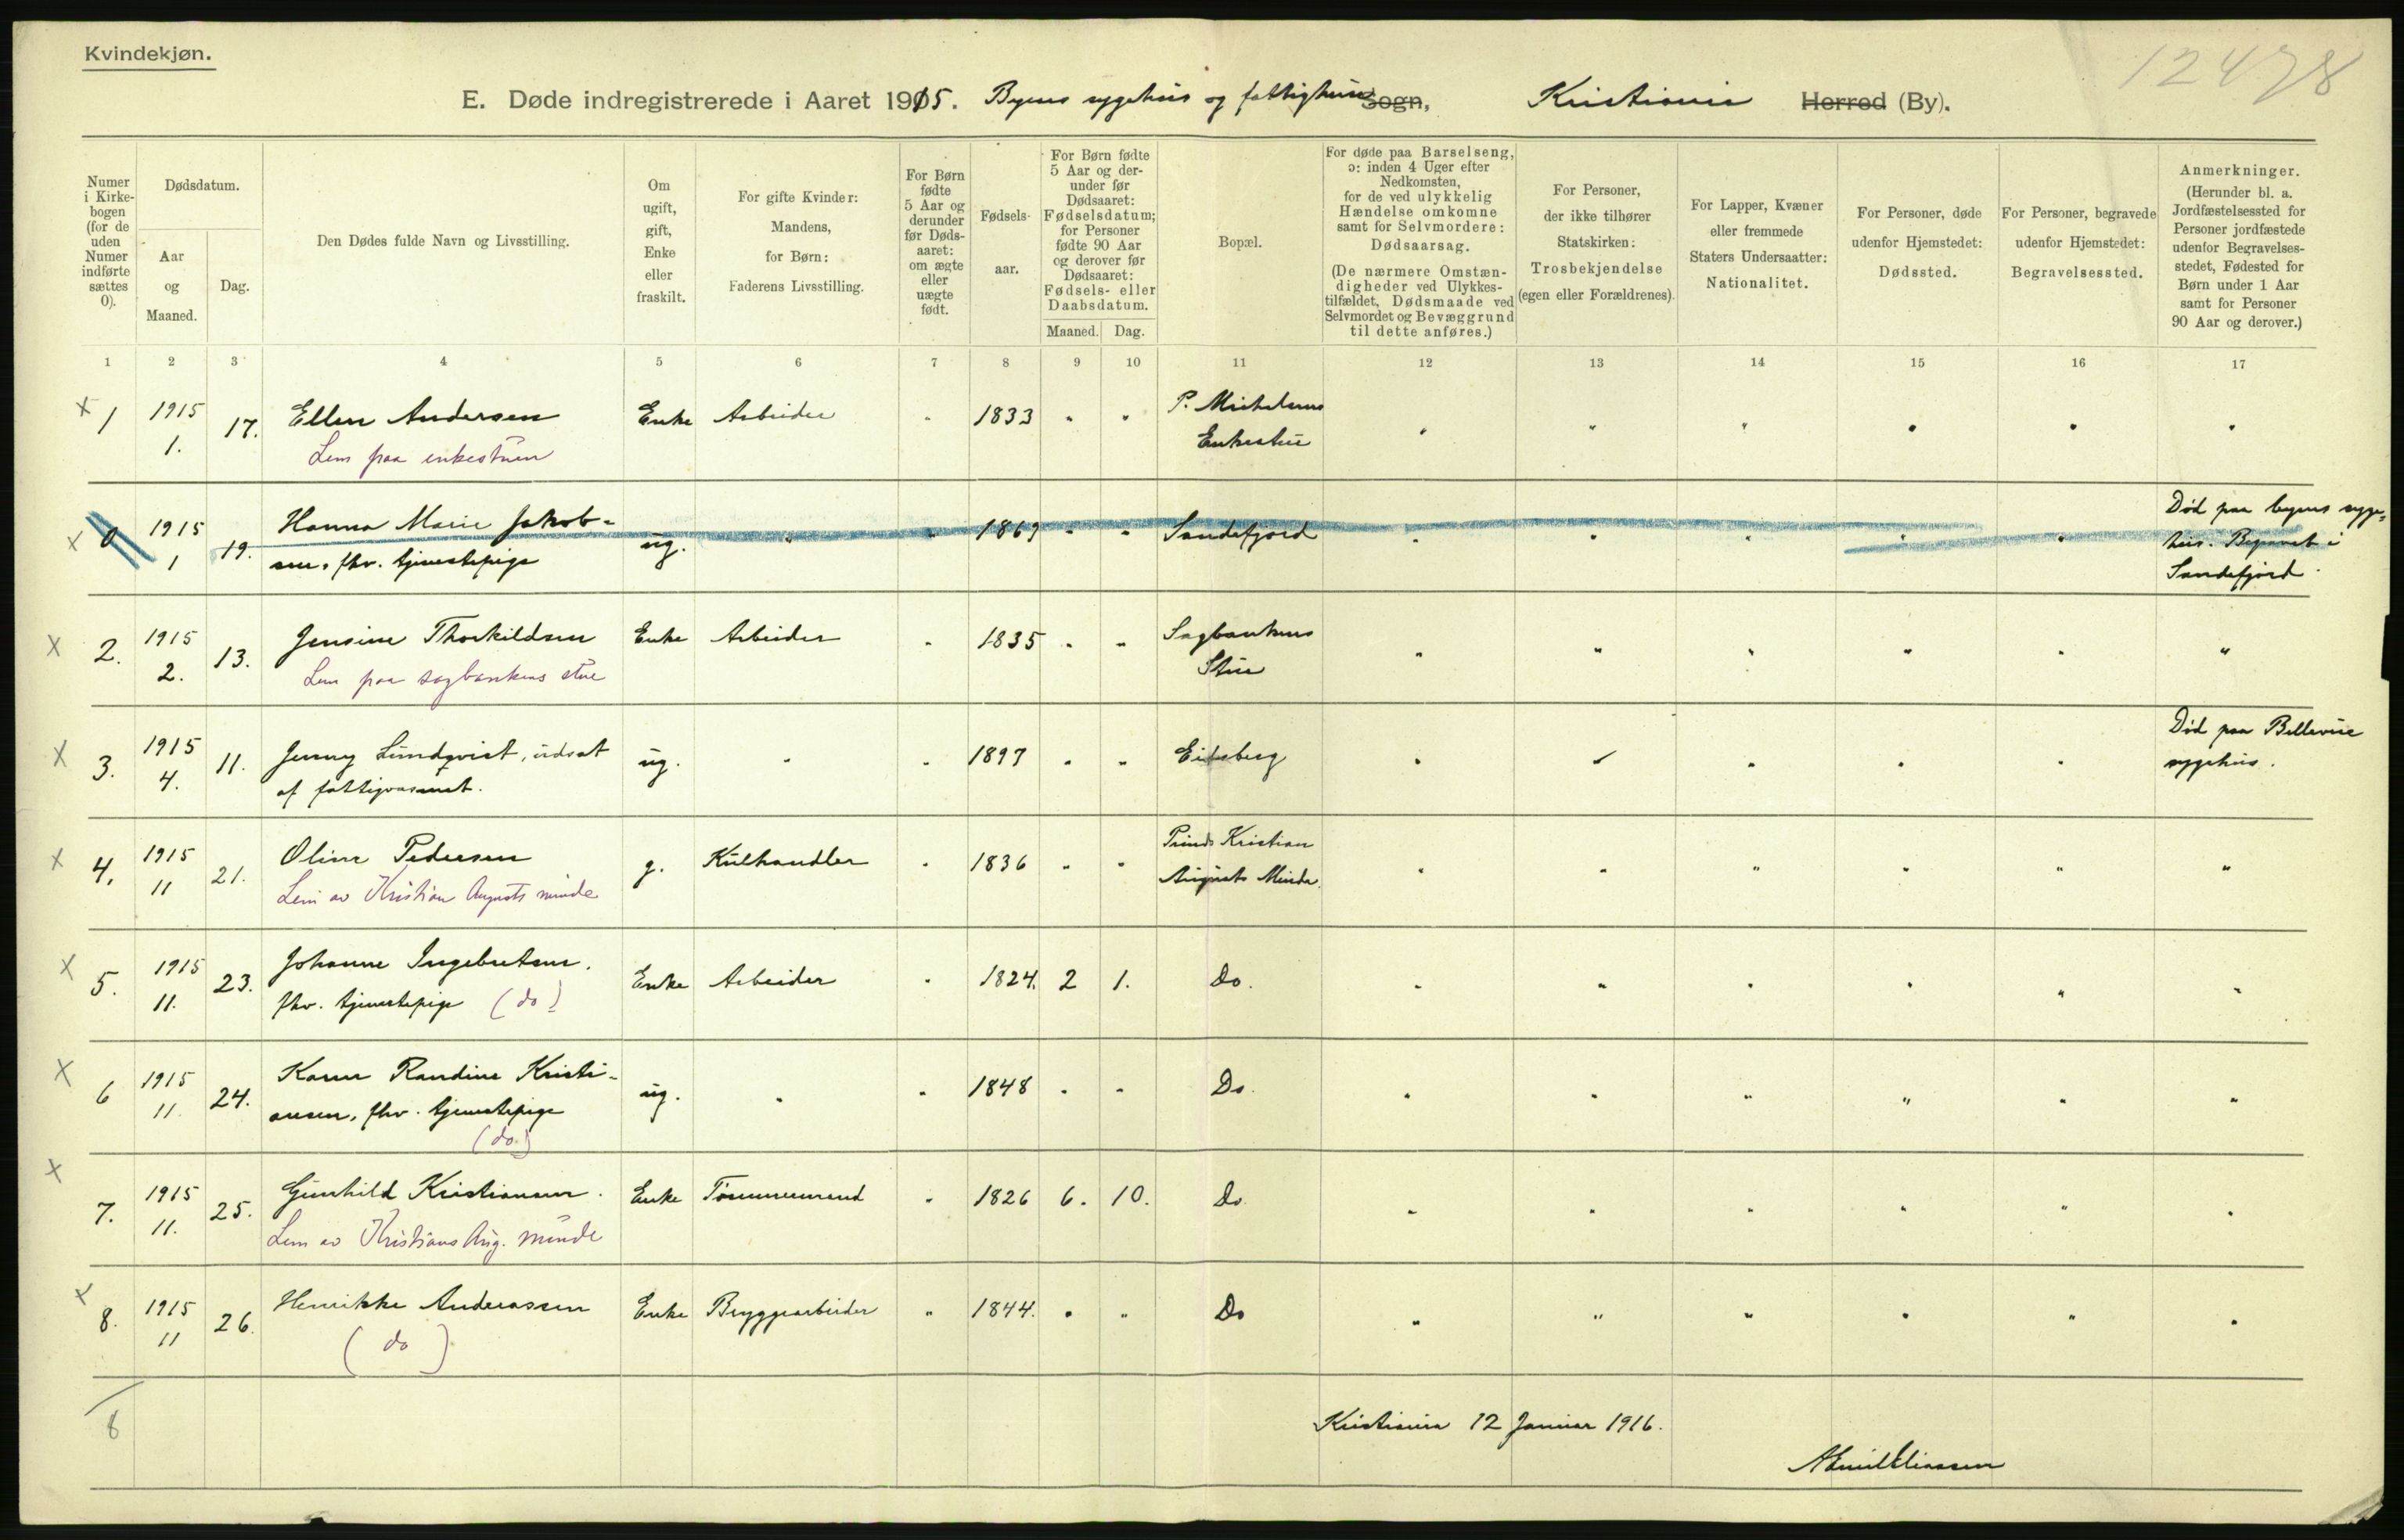 Kvindekjøn.
12478
E. Døde indregistrerede i Aaret 1915. Byens sygehus og fattighuse Sogn, Kristiania Herred (By).
Numer i Kirkebogen (for de uden Numer indførte sættes 0).
Dødsdatum.
Aar og Maaned.
Dag.
Den Dødes fulde Navn og Livsstilling.
Om ugift, gift, Enke eller fraskilt.
For gifte Kvinder: Mandens, for Børn: Faderens Livsstilling.
For Børn fødte 5 Aar og derunder før Dødsaaret: om ægte eller uægte født.
Fødselsaar.
For Børn fødte 5 Aar og derunder før Dødsaaret: Fødselsdatum; for Personer fødte 90 Aar og derover før Dødsaaret: Fødsels- eller Daabsdatum.
Maaned. Dag.
Bopæl.
For døde paa Barselseng, ɔ: inden 4 Uger efter Nedkomsten, for de ved ulykkelig Hændelse omkomne samt for Selvmordere: Dødsaarsag.
(De nærmere Omstændigheder ved Ulykkestilfældet, Dødsmaade ved Selvmordet og Bevæggrund til dette anføres.)
For Personer, der ikke tilhører Statskirken: Trosbekjendelse (egen eller Forældrenes).
For Lapper, Kvæner eller fremmede Staters Undersaatter: Nationalitet.
For Personer, døde udenfor Hjemstedet: Dødssted.
For Personer, begravede udenfor Hjemstedet: Begravelsessted.
Anmerkninger.
(Herunder bl. a. Jordfæstelsessted for Personer jordfæstede udenfor Begravelsesstedet, Fødested for Børn under 1 Aar samt for Personer 90 Aar og derover.)
1 2 3 4 5 6 7 8 9 10 11 12 13 14 15 16 17
x 1 1915 1. 17. Ellen Andersen Enke Arbeider " 1833 " " P. Michelsens Enkestue " " " " " "
Lem paa enkestuen
x 0 1915 1 19. Hanna Marie Jakobsen, fhv. tjenestepige ug. " " 1869 " " Sandefjord " " " " " Død paa byens sygehus. Begravet i Sandefjord.
x 2. 1915 2. 13. Jensine Thorkildsen Enke Arbeider " 1835 " " Sagbankens Stue " " " " " "
Lem paa sagbankens stue
x 3. 1915 4. 11. Jenny Lundqvist, udsat af fattigvæsenet. ug. " " 1897 " " Eidsberg " " " " " Død paa Bellevue sygehus.
x 4. 1915 11 21. Oline Pedersen g. Kulhandler " 1836 " " Prinds Kristian Augusts Minde. " " " " " "
Lem av Kristian Augusts minde
x 5. 1915 11. 23. Johanne Ingebretsen. fhv. tjenestepige (do) Enke Arbeider " 1824. 2 1. Do. " " " " " "
x 6 1915 11. 24. Karen Randine Kristiansen, fhv. tjenestepige (do) ug. " " 1848 " " Do. " " " " " "
x 7. 1915 11. 25. Gunhild Kristiansen. Enke Tømmermand " 1826 6. 10. Do " " " " " "
Lem av Kristians Aug. minde
x 8. 1915 11 26. Henrikke Andreassen Enke Bryggearbeider " 1844. " " Do " " " " " "
(do)
8
Kristiania 12 Januar 1916.
A Emil Eliassen